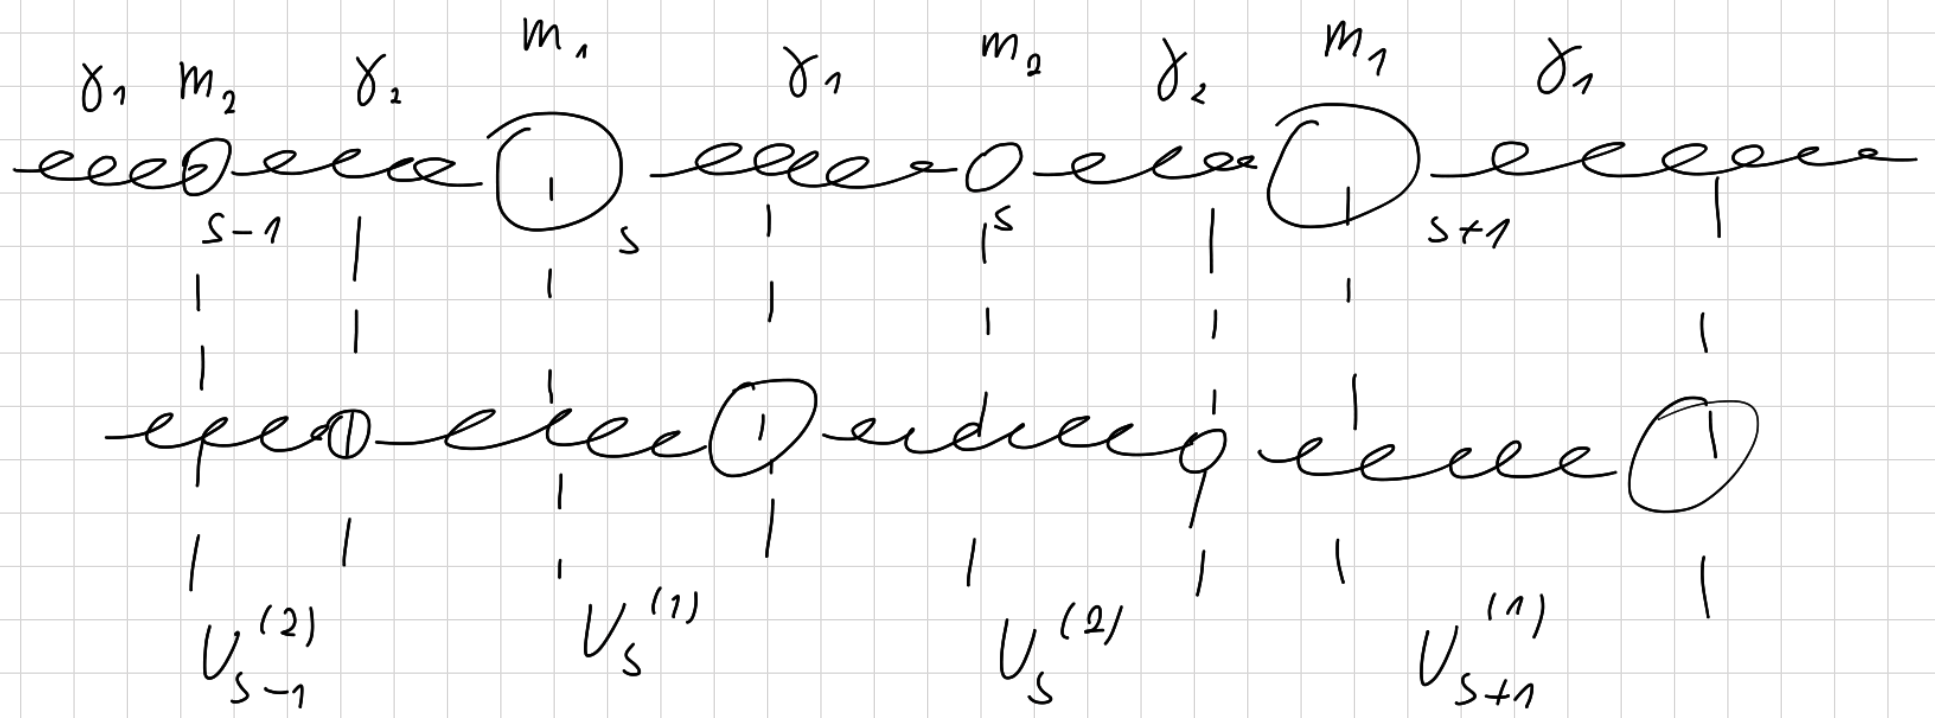 γ₁ m₂ γ₂ m₁ γ₁ m₂ γ₂ m₁ γ₁
s-1 s s s+1
U_{s-1}^{(2)} U_s^{(1)} U_s^{(2)} U_{s+1}^{(1)}